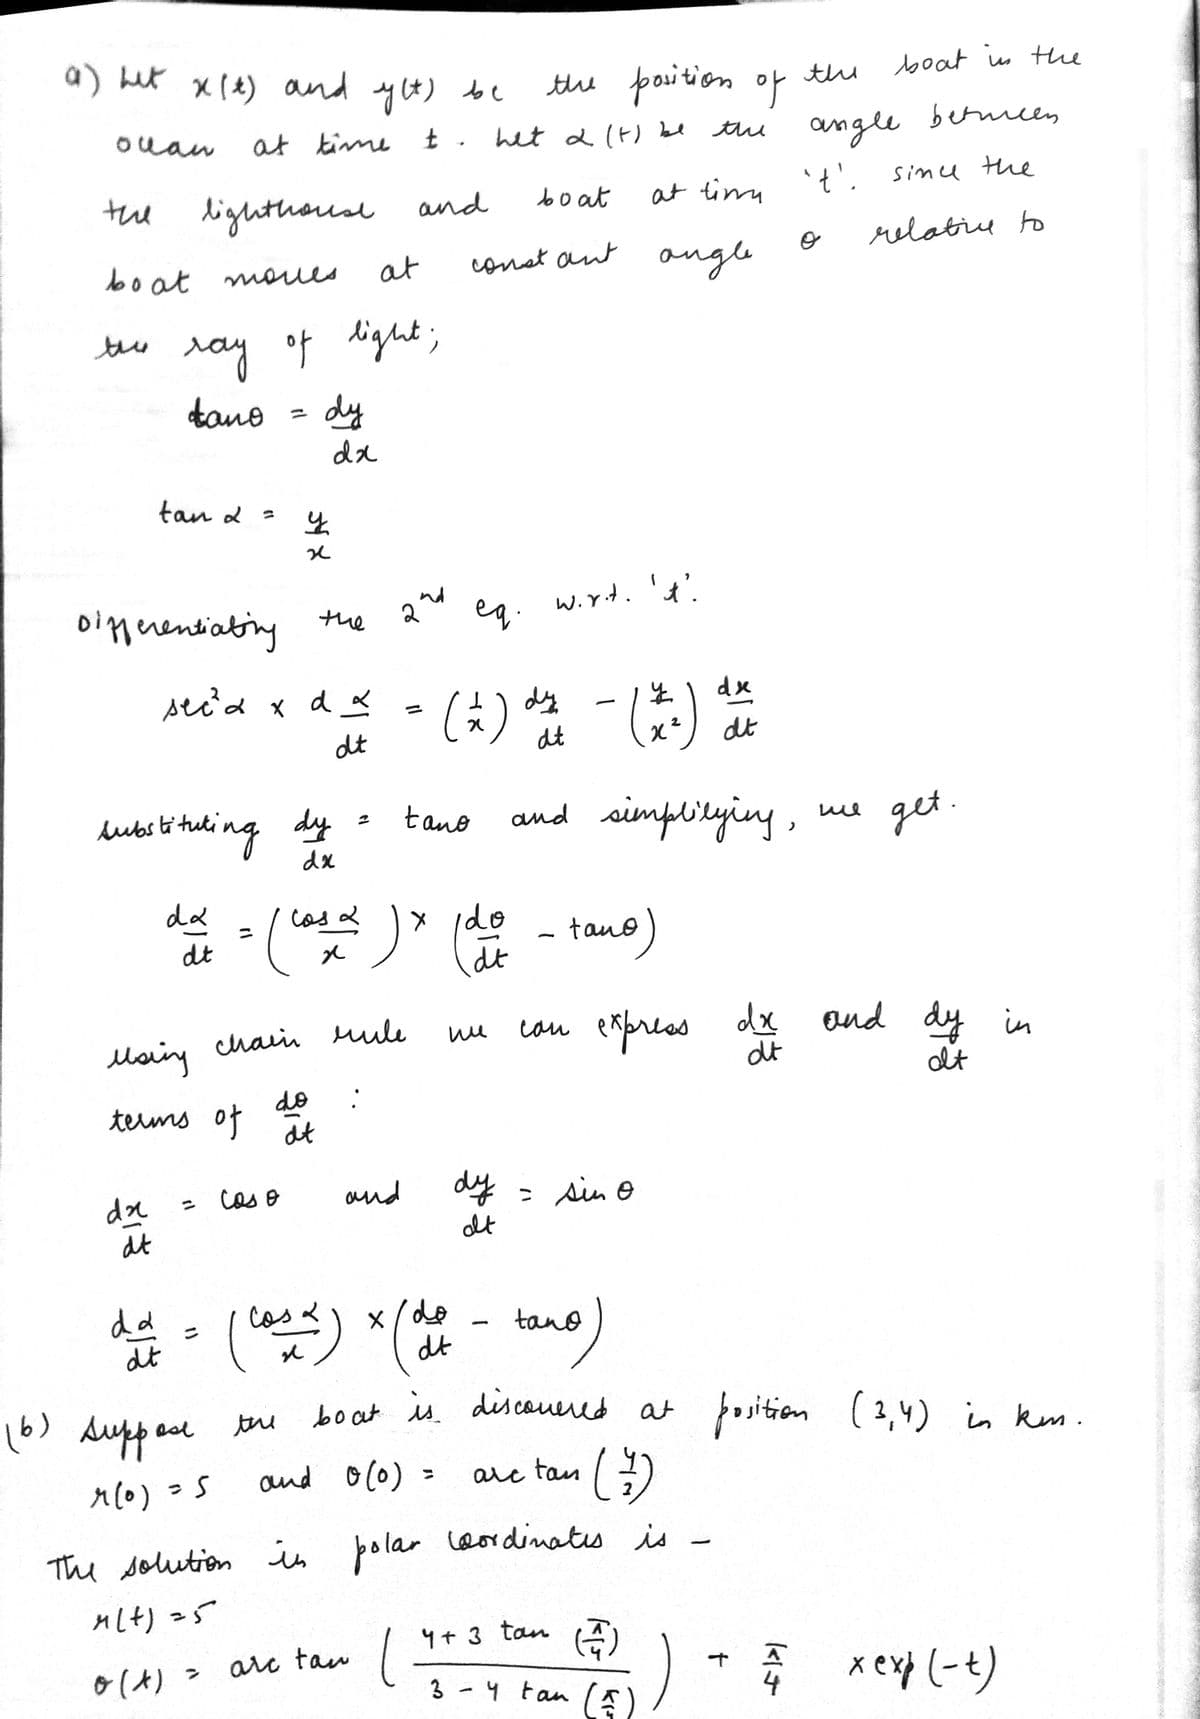 a) Let x(t) and y(t) be the position of the boat in the
ocean at time t. Let α(t) be the angle between
the lighthouse and boat at time 't'. since the
boat moves at constant angle θ relative to
the ray of light;
tanθ = dy/dx
tan α = y/x
Differentiating the 2nd eq. w.r.t. 't'.
sec²α x dα/dt = (1/x) dy/dt - (y/x²) dx/dt
Substituting dy/dx = tanθ and simplifying, we get.
dα/dt = (cos α/x) x (dθ/dt - tanθ)
Using chain rule we can express dx/dt and dy/dt in
terms of dθ/dt :
dx/dt = cos θ and dy/dt = sin θ
dα/dt = (cos α/x) x (dθ/dt - tanθ)
(b) Suppose the boat is discovered at position (3,4) in km.
r(0) = 5 and θ(0) = arc tan (4/3)
The solution in polar coordinates is -
r(t) = 5
θ(t) = arc tan ( 4+3 tan (π/4) / 3-4 tan (π/4) ) + π/4 x exp(-t)